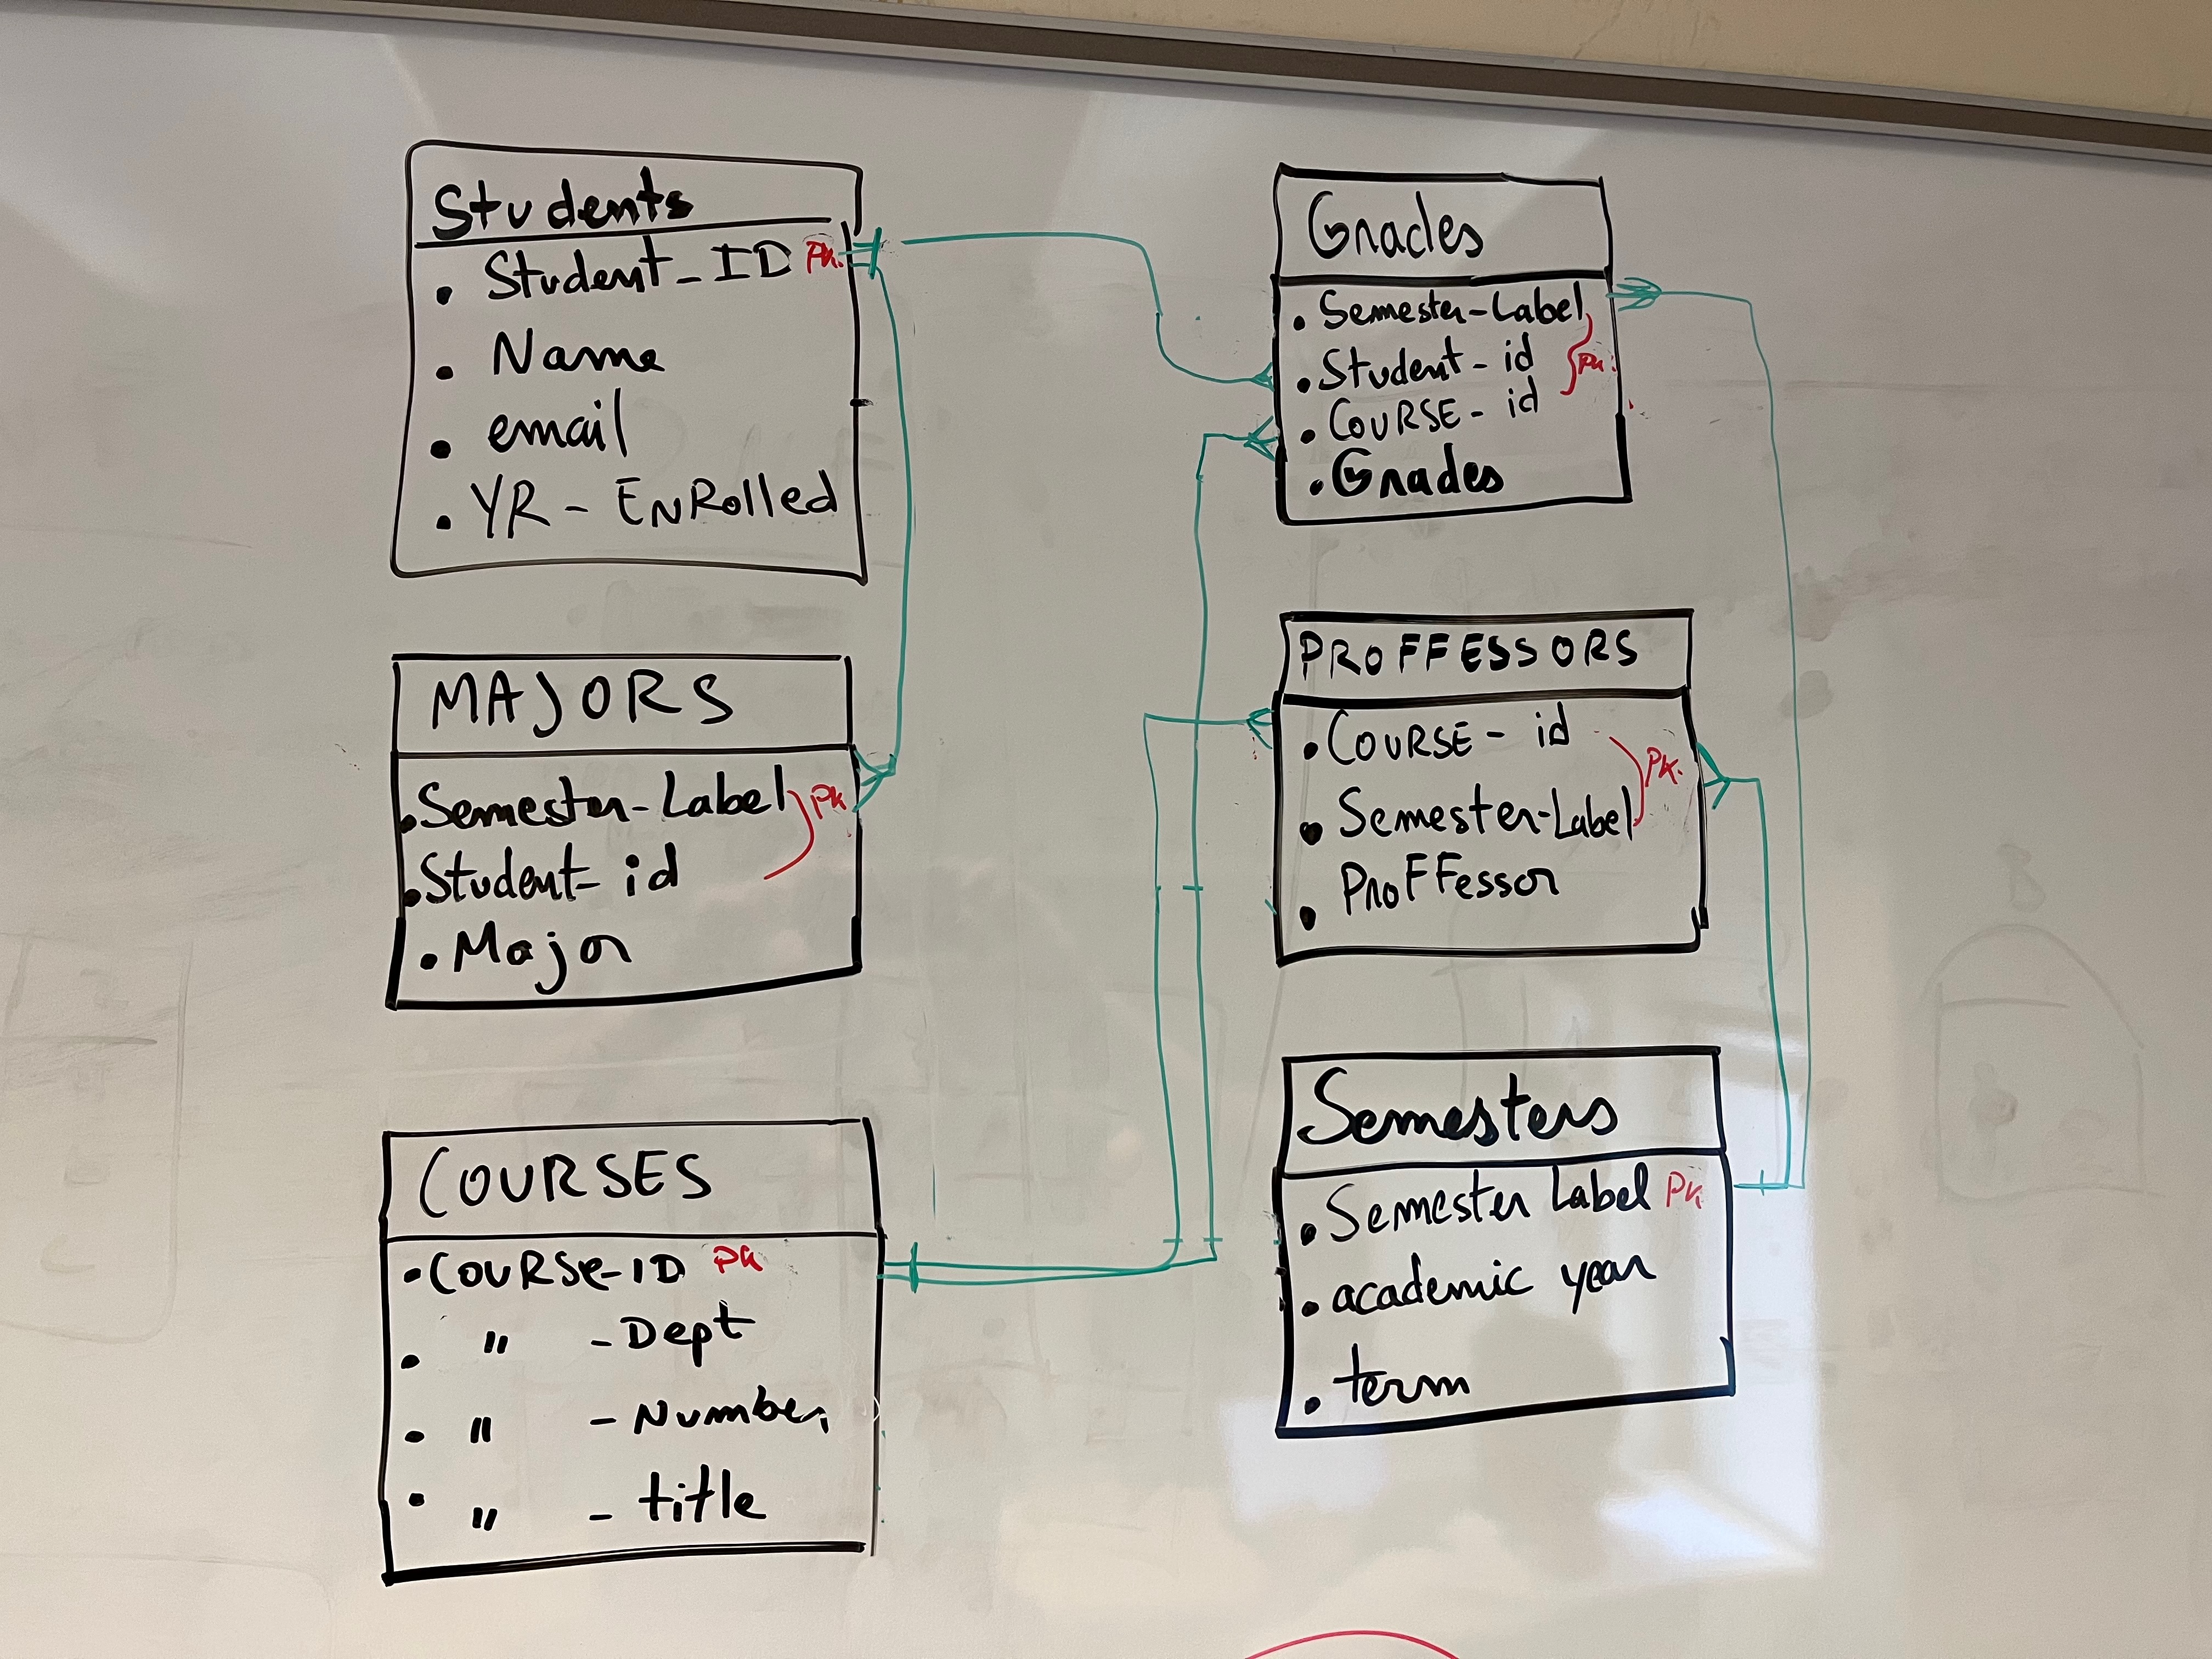 Students
• Student_ID PK.
• Name
• email
• YR - ENRolled
MAJORS
• Semester-Label PK
• Student-id
• Major
COURSES
• COURSE-ID PK
• " - Dept
• " - Number
• " - title
Grades
• Semester-Label
• Student-id PK.
• COURSE-id
• Grades
PROFFESSORS
• COURSE-id PK.
• Semester-Label
• ProFFessor
Semesters
• Semester Label PK
• academic year
• term